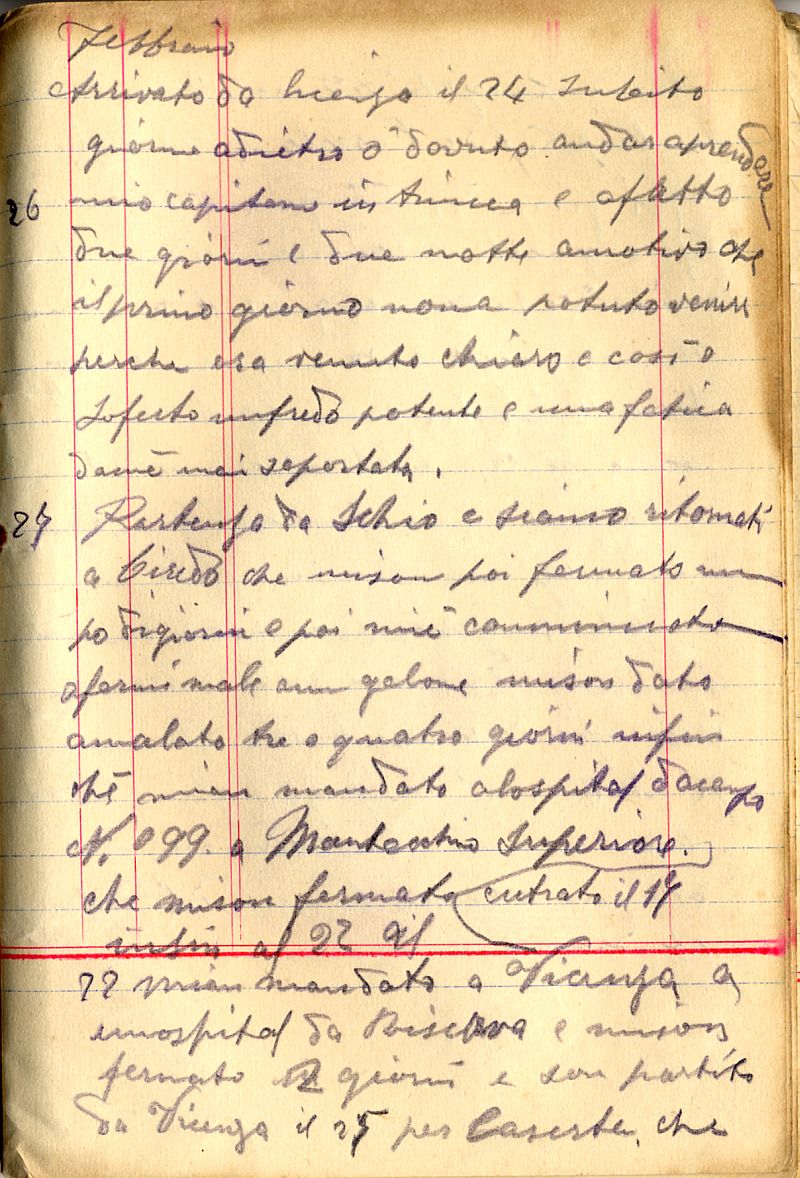 Febbraio
Arrivato da licenza il 24 Subito
giorno adietro o dovuto andar aprendere
26 mio capitano in trincea e o fatto
due giorni e due notte amotivo che
ilprimo giorno nona potuto venire
perche era venuto chiaro e cosi o
Soferto unfredo potente e una fatica
damè mai soportata.
27 Partenza da Schio e siamo ritornati
a che mison poi fermato un
po digiorni e poi miè comminciato
afarmi male un galone mison dato
amalato tre o quatro giorni infin
chè mian mandato alospital dacampo
N. 099. a Montecchio Superiore.
che mison fermato entrato il 17
insin al 22 il
22 mian mandato a Vicenza a
unospital da Riserva e mison
fermato giorni e son partito
da Vicenza il 25 per Caserta, che